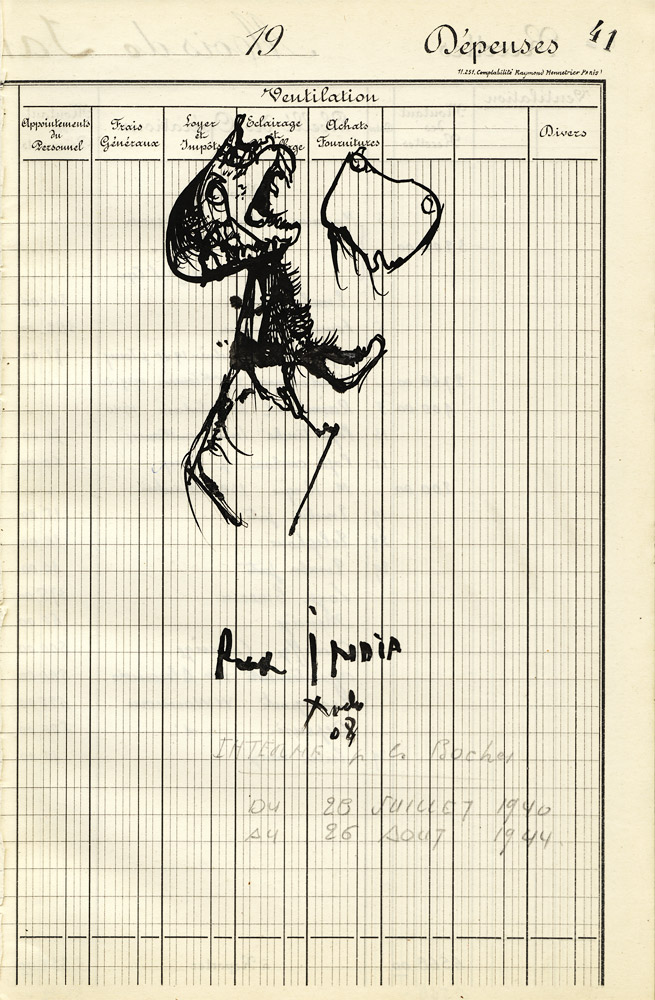 19
Dépenses
41
11.251. Comptabilité Raymond Monnetrier Paris
Ventilation
Appointements du Personnel
Frais Généraux
Loyer et Impôts
Eclairage et
Achats Fournitures
Divers
INDIA
08
Boches
DU 28 JUILLET 1940
AU 26 AOUT 1944.